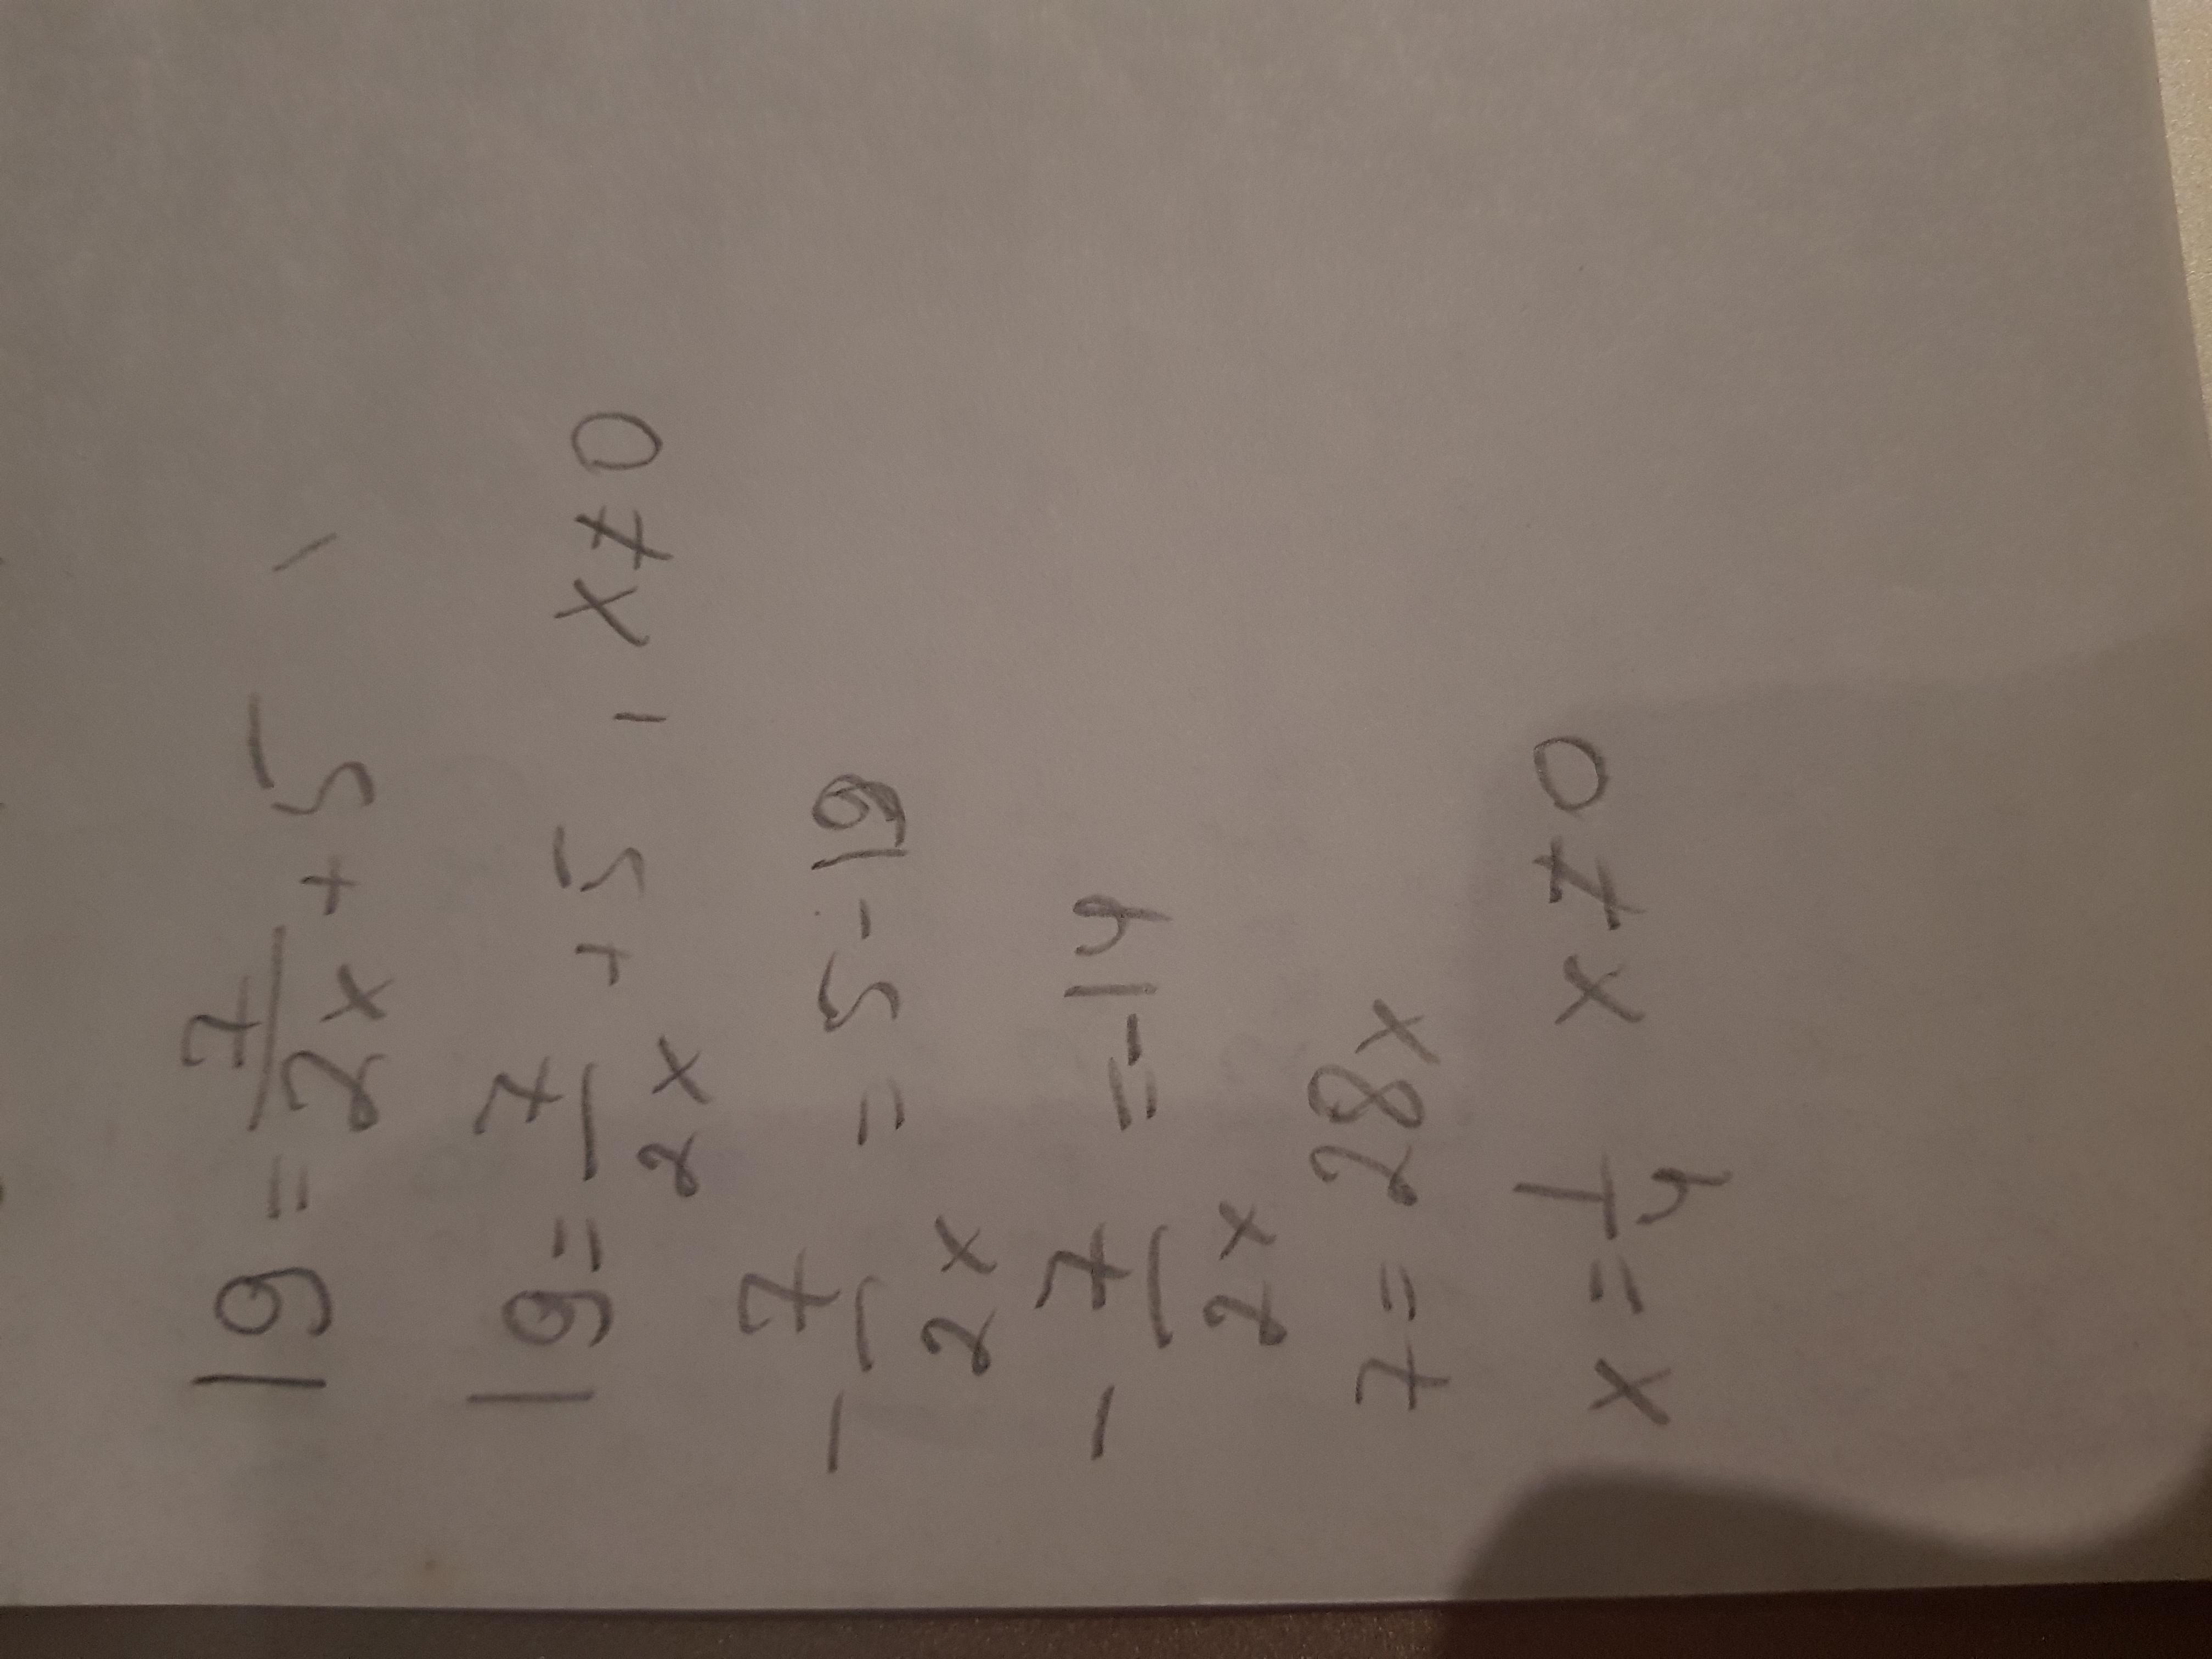 19 = 7/2x + 5
19 = 7/2x + 5 , x ≠ 0
- 7/2x = 5 - 19
- 7/2x = -14
7 = 28x
x = 1/4 x ≠ 0